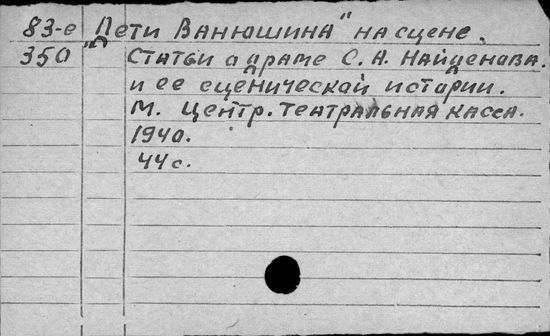 83-е "Дети Ванюшина" на сцене.
350 Статьи о драме С. А. Найденова.
и ее сценической истории.
М. Центр. театральная касса.
1940.
44 с.